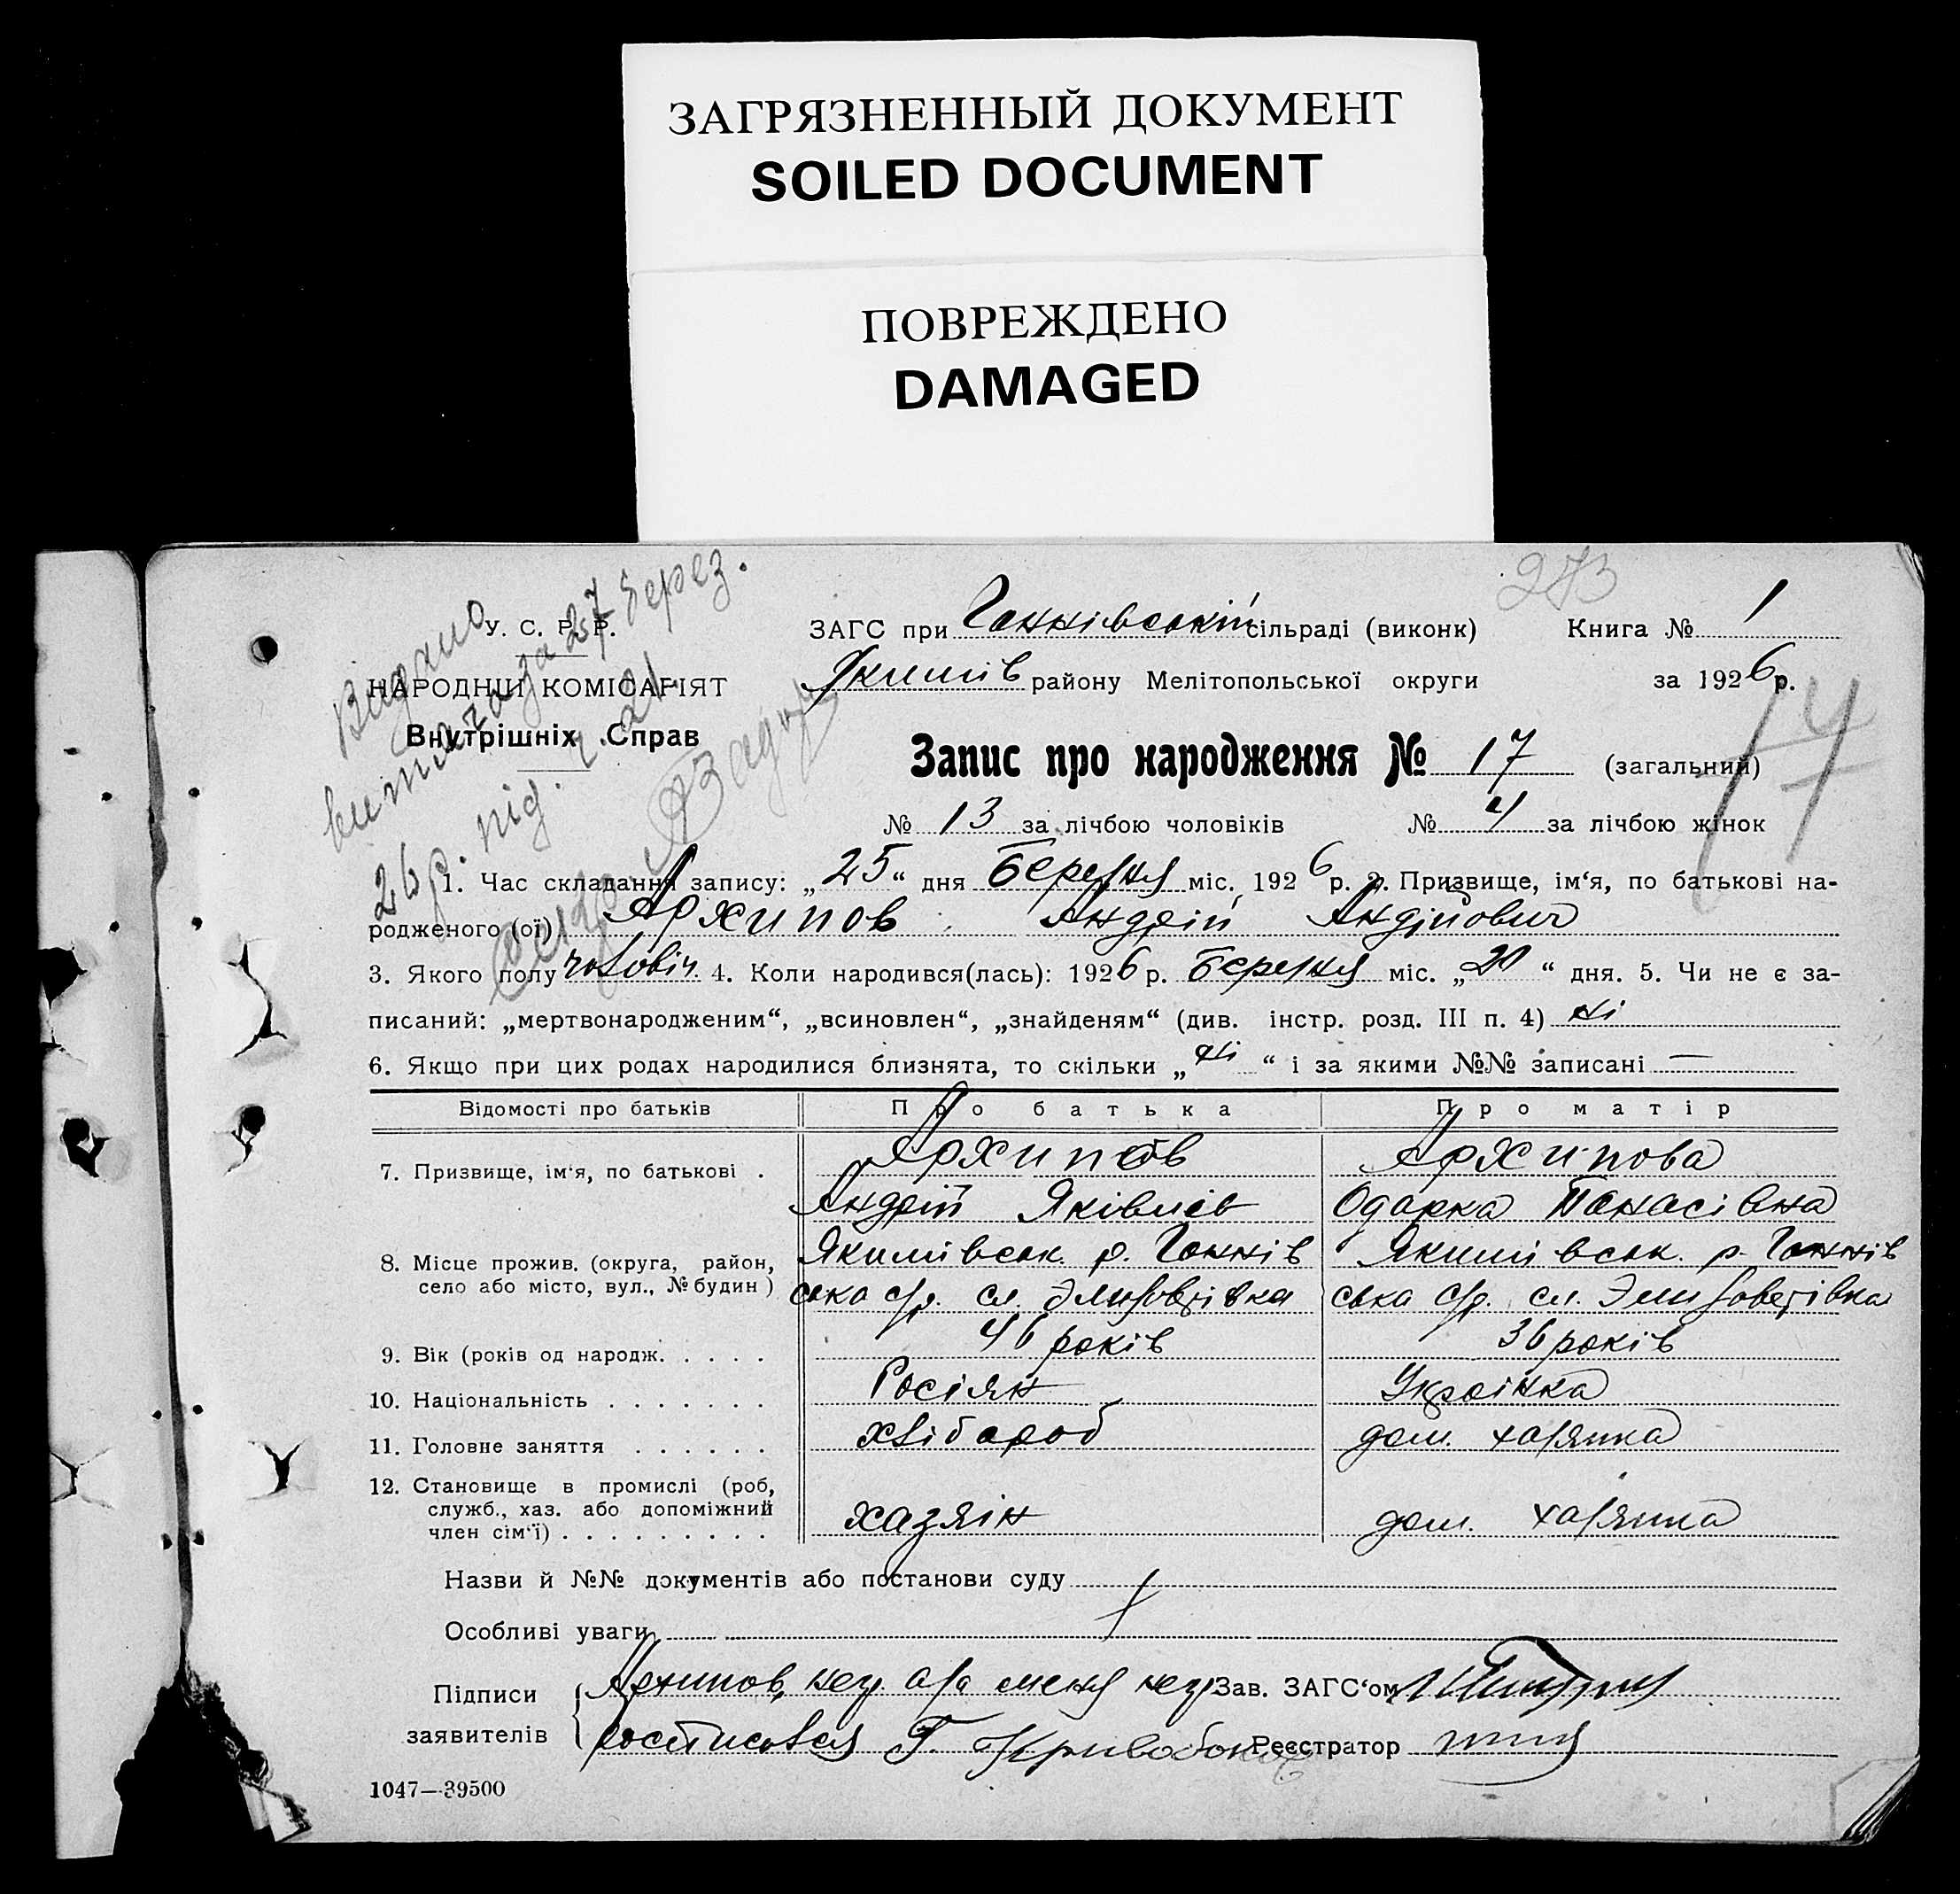 ЗАГРЯЗНЕННЫЙ ДОКУМЕНТ
SOILED DOCUMENT
ПОВРЕЖДЕНО
DAMAGED
273
Видано
витяга за 27 берез.
26 р. під. ч. 21.
У. С. Р. Р.
НАРОДНІЙ КОМІСАРІЯТ
Внутрішніх Справ
ЗАГС при Ганнівській сільраді (виконк) Книга № 1
Якимів району Мелітопольської округи за 1926 р.
Запис про народження № 17 (загальний)
17
№ 13 за лічбою чоловіків № 4 за лічбою жінок
1. Час складання запису: „25“ дня Березня міс. 1926 р. 2. Призвище, ім‘я, по батькові на-
родженого (ої) Архипов Андрій Андрійович
3. Якого полу чоловіч. 4. Коли народився(лась): 1926 р. Березня міс. „20“ дня. 5. Чи не є за-
писаний: „мертвонародженим“, „всиновлен“, „знайденям“ (див. інстр. розд. III п. 4) ні
6. Якщо при цих родах народилися близнята, то скільки „ні“ і за якими №№ записані —
Відомості про батьків Про батька Про матір
7. Призвище, ім‘я, по батькові . Архипов Архипова
Андрій Яковлев Одарка Панасівна
8. Місце прожив. (округа, район, село або місто, вул., № будин) Якимівськ. р. Ганнів Якимівськ. р. Ганнів
ська с/р. сл. Элизоветівка ська с/р. сл. Элизоветівка
9. Вік (років од народж. . . . . 46 років 36 років
10. Національність . . . . . . . Росіян Українка
11. Головне заняття . . . . . . хлібороб дом. хазяйка
12. Становище в промислі (роб, служб., хаз. або допоміжний член сім‘ї) . . . . . . . . . хазяїн дом. хазяйка
Назви й №№ документів або постанови суду
Особливі уваги
Підписи заявителів Архипов, нег. а за меня нег Зав. ЗАГС‘ом
росписовся Г. Кривобоков Реєстратор
1047—39500